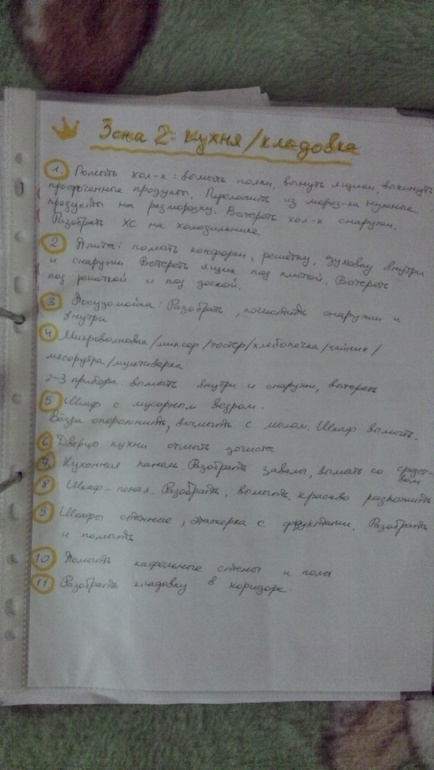 Зона 2: Кухня/кладовка
1. Помыть хол-к: вымыть полки, вынуть ящики, выкинуть
просроченные продукты. Переложить из мороз-ки нужные
продукты на разморозку. Вытереть хол-к снаружи.
Разобрать ХС на холодильнике
2 Плита: помыть конфорки, решётку, духовку внутри
и снаружи Вытереть ящик под плитой. Вытереть
под решёткой и под доской.
3 Посудомойка: Разобрать, почистить снаружи и
внутри
4 Микроволновка/миксер/тостер/хлебопечка/чайник/
мясорубка/мультиварка
2-3 прибора вымыть внутри и снаружи, вытереть
5 Шкаф с мусорным ведром.
Ведро опорожнить, вымыть с мылом. Шкаф вымыть.
6 Дверцы кухни отмыть дочиста
7 Кухонная панель Разобрать завалы, вымыть со средст-
вом
8 Шкаф-пенал. Разобрать, вымыть, красиво разложить
9 Шкафы стенные, этажерка с фруктами. Разобрать
и помыть
10 Помыть кафельные стены и полы
11 Разобрать кладовку в коридоре